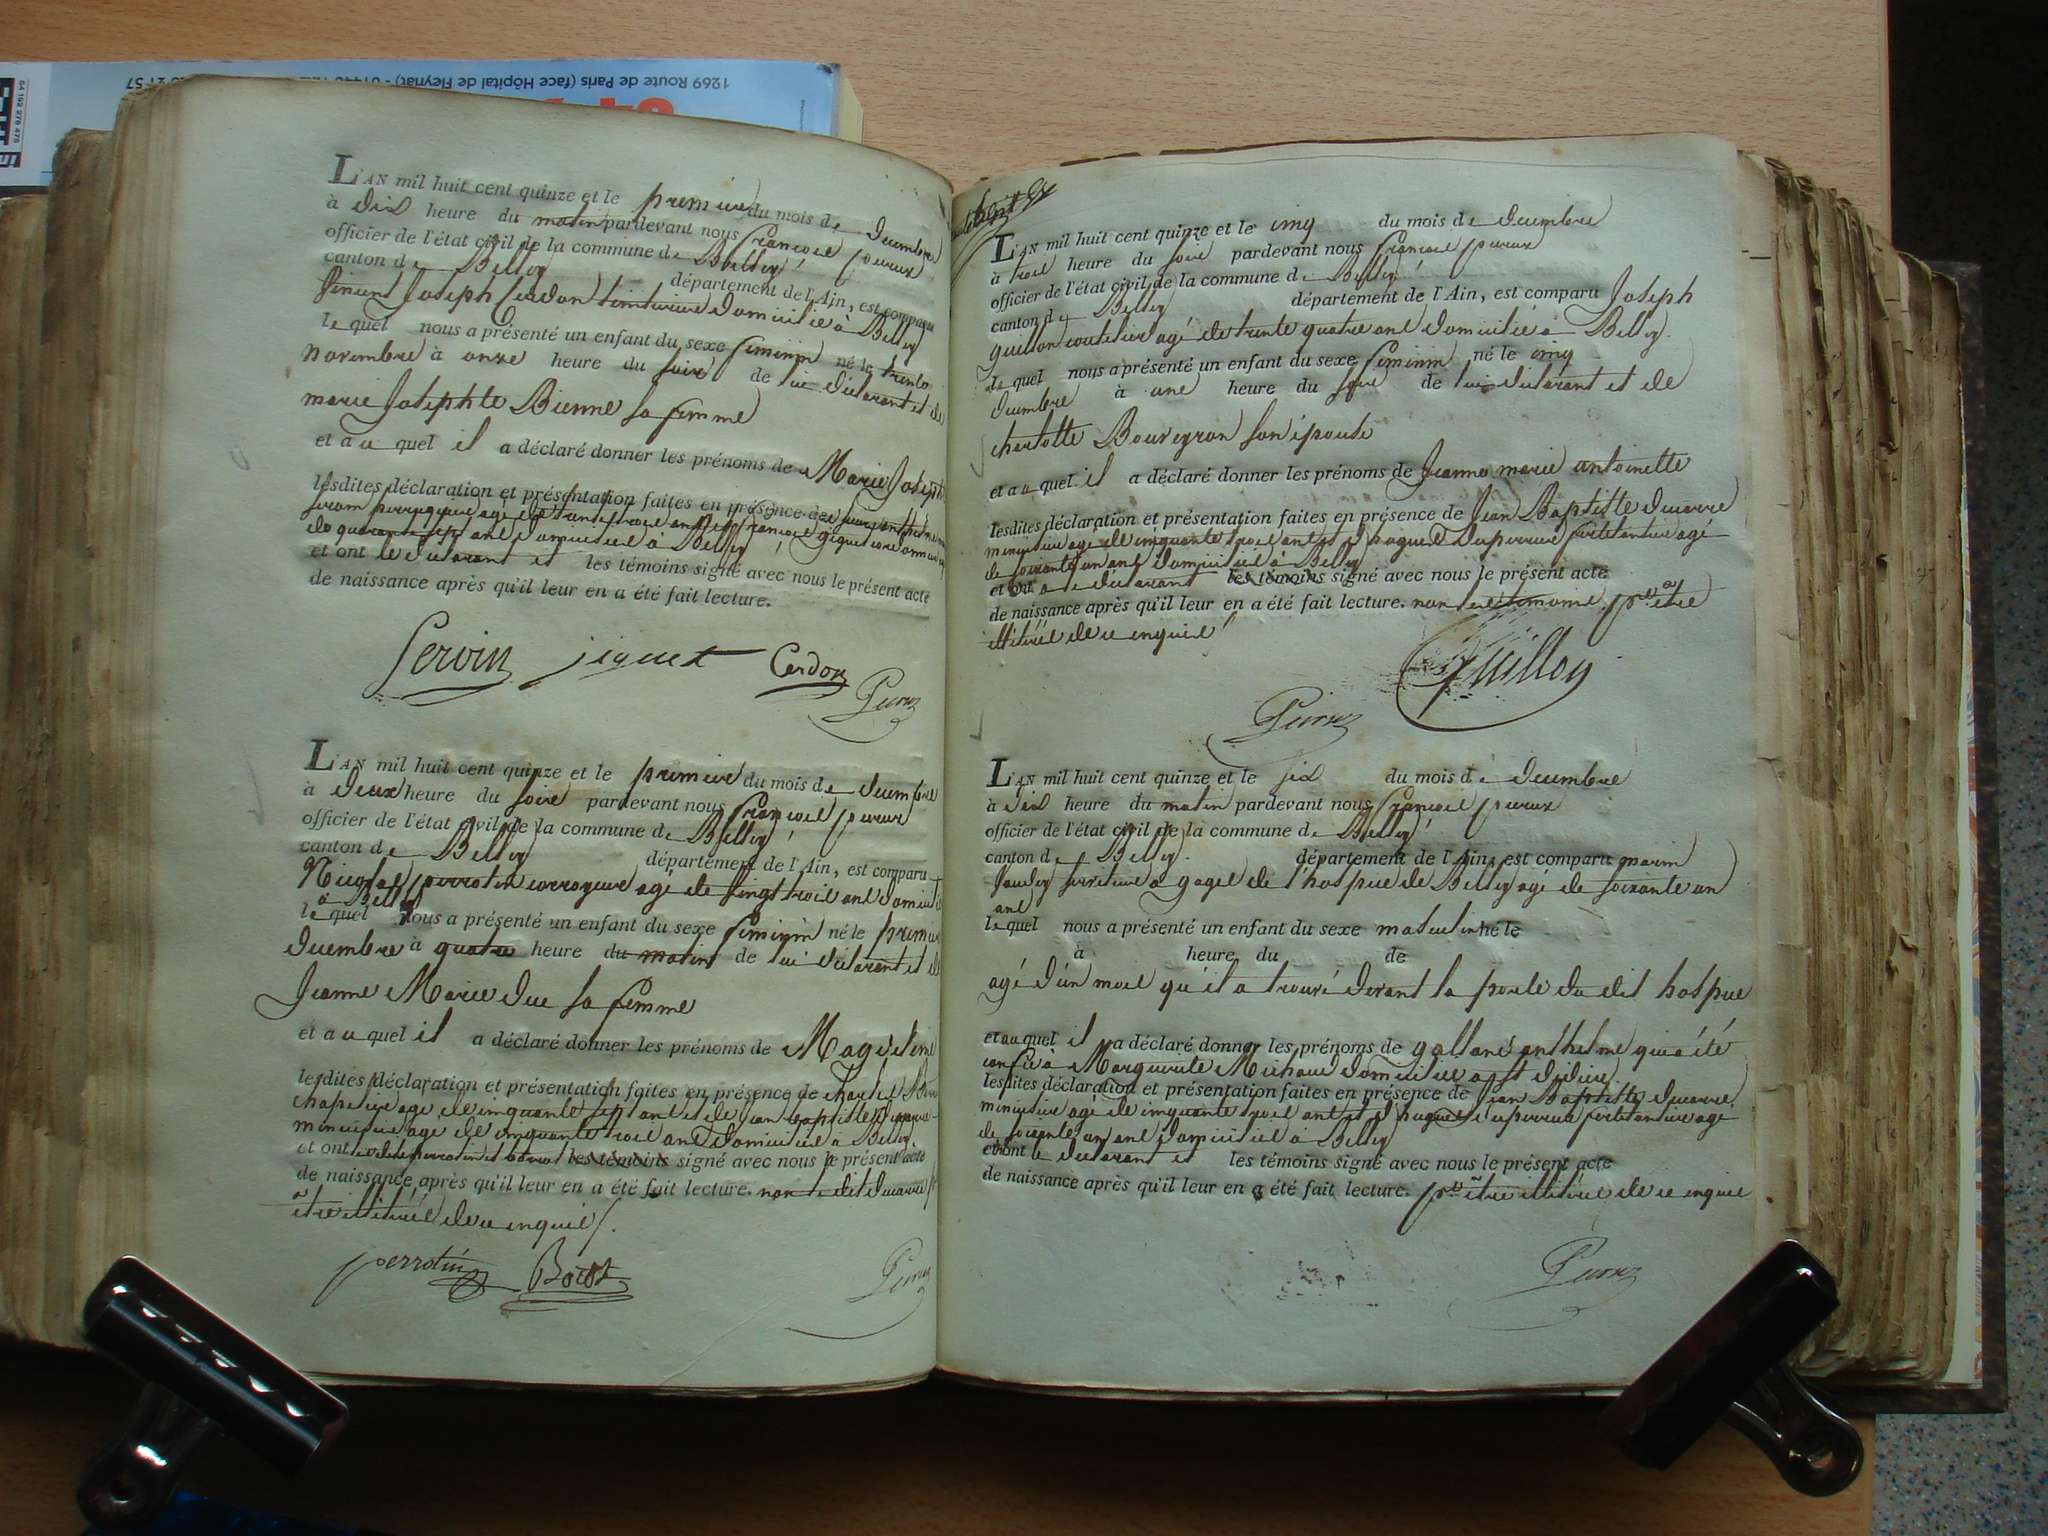 1269 Route de Paris (face Hôpital de Fleyriat) - 01440
L'AN mil huit cent quinze et le premier du mois de decembre
à dix heure du matin pardevant nous françois peroux
officier de l'état civil de la commune de Belley
canton de Belley département de l'Ain, est comparu
Joseph Cerdon domicilié à Belley
lequel nous a présenté un enfant du sexe feminin né le trente
novembre à onze heure du soir de lui déclarant et de
marie Josephte Bienne sa femme
et auquel il a déclaré donner les prénoms de Marie Joseph
lesdites déclaration et présentation faites en présence de
perruquier agé de trente trois ans et françois
de quarante sept ans domicilié à Belley
et ont le déclarant et les témoins signé avec nous le présent acte
de naissance après qu'il leur en a été fait lecture.
Servin jiguet Cerdon
L'AN mil huit cent quinze et le premier du mois de decembre
à deux heure du soir pardevant nous françois peroux
officier de l'état civil de la commune de Belley
canton de Belley département de l'Ain, est comparu
Nicolas perrotin corroyeur agé de vingt trois ans domicilié
à Belley
lequel nous a présenté un enfant du sexe feminin né le premier
decembre à quatre heure du matin de lui déclarant et de
Jeanne Marie Duc sa femme
et auquel il a déclaré donner les prénoms de Magdeleine
lesdites déclaration et présentation faites en présence de charles
chapelier agé de cinquante sept ans et de jean baptiste ducarre
menuisier agé de cinquante trois ans domicilié à Belley
et ont les témoins signé avec nous le présent acte
de naissance après qu'il leur en a été fait lecture. non le dit ducarre p
être illitéré de ce enquis
perrotin
L'AN mil huit cent quinze et le cinq du mois de decembre
à trois heure du soir pardevant nous françois peroux
officier de l'état civil de la commune de Belley
canton de Belley département de l'Ain, est comparu Joseph
guillon coutelier agé de trente quatre ans domicilié à Belley.
lequel nous a présenté un enfant du sexe feminin né le cinq
decembre à une heure du soir de lui déclarant et de
charlotte Bouveyron son épouse
et auquel il a déclaré donner les prénoms de Jeanne marie antoinette
lesdites déclaration et présentation faites en présence de Jean Baptiste ducarre
menuisier agé de cinquante trois ans et duperrier agé
de soixante un ans domicilié à Belley
et ont le déclarant les témoins signé avec nous le présent acte
de naissance après qu'il leur en a été fait lecture. non les témoins pr être
illitérés de ce enquis
Guillon
L'AN mil huit cent quinze et le six du mois de decembre
à dix heure du matin pardevant nous françois peroux
officier de l'état civil de la commune de Belley
canton de Belley. département de l'Ain, est comparu
à gages de l'hospice de Belley agé de soixante un
ans
lequel nous a présenté un enfant du sexe masculin né le
à heure du de
agé d'un mois qu'il a trouvé devant la porte du dit hospice
et auquel il a déclaré donner les prénoms de anthelme qui a été
confié à Marguerite Michaud domiciliée à
lesdites déclaration et présentation faites en présence de Jean Baptiste ducarre
menuisier agé de cinquante trois ans et duperrier agé
de soixante un ans domicilié à Belley
et ont le déclarant et les témoins signé avec nous le présent acte
de naissance après qu'il leur en a été fait lecture. pr être illitérés de ce enquis